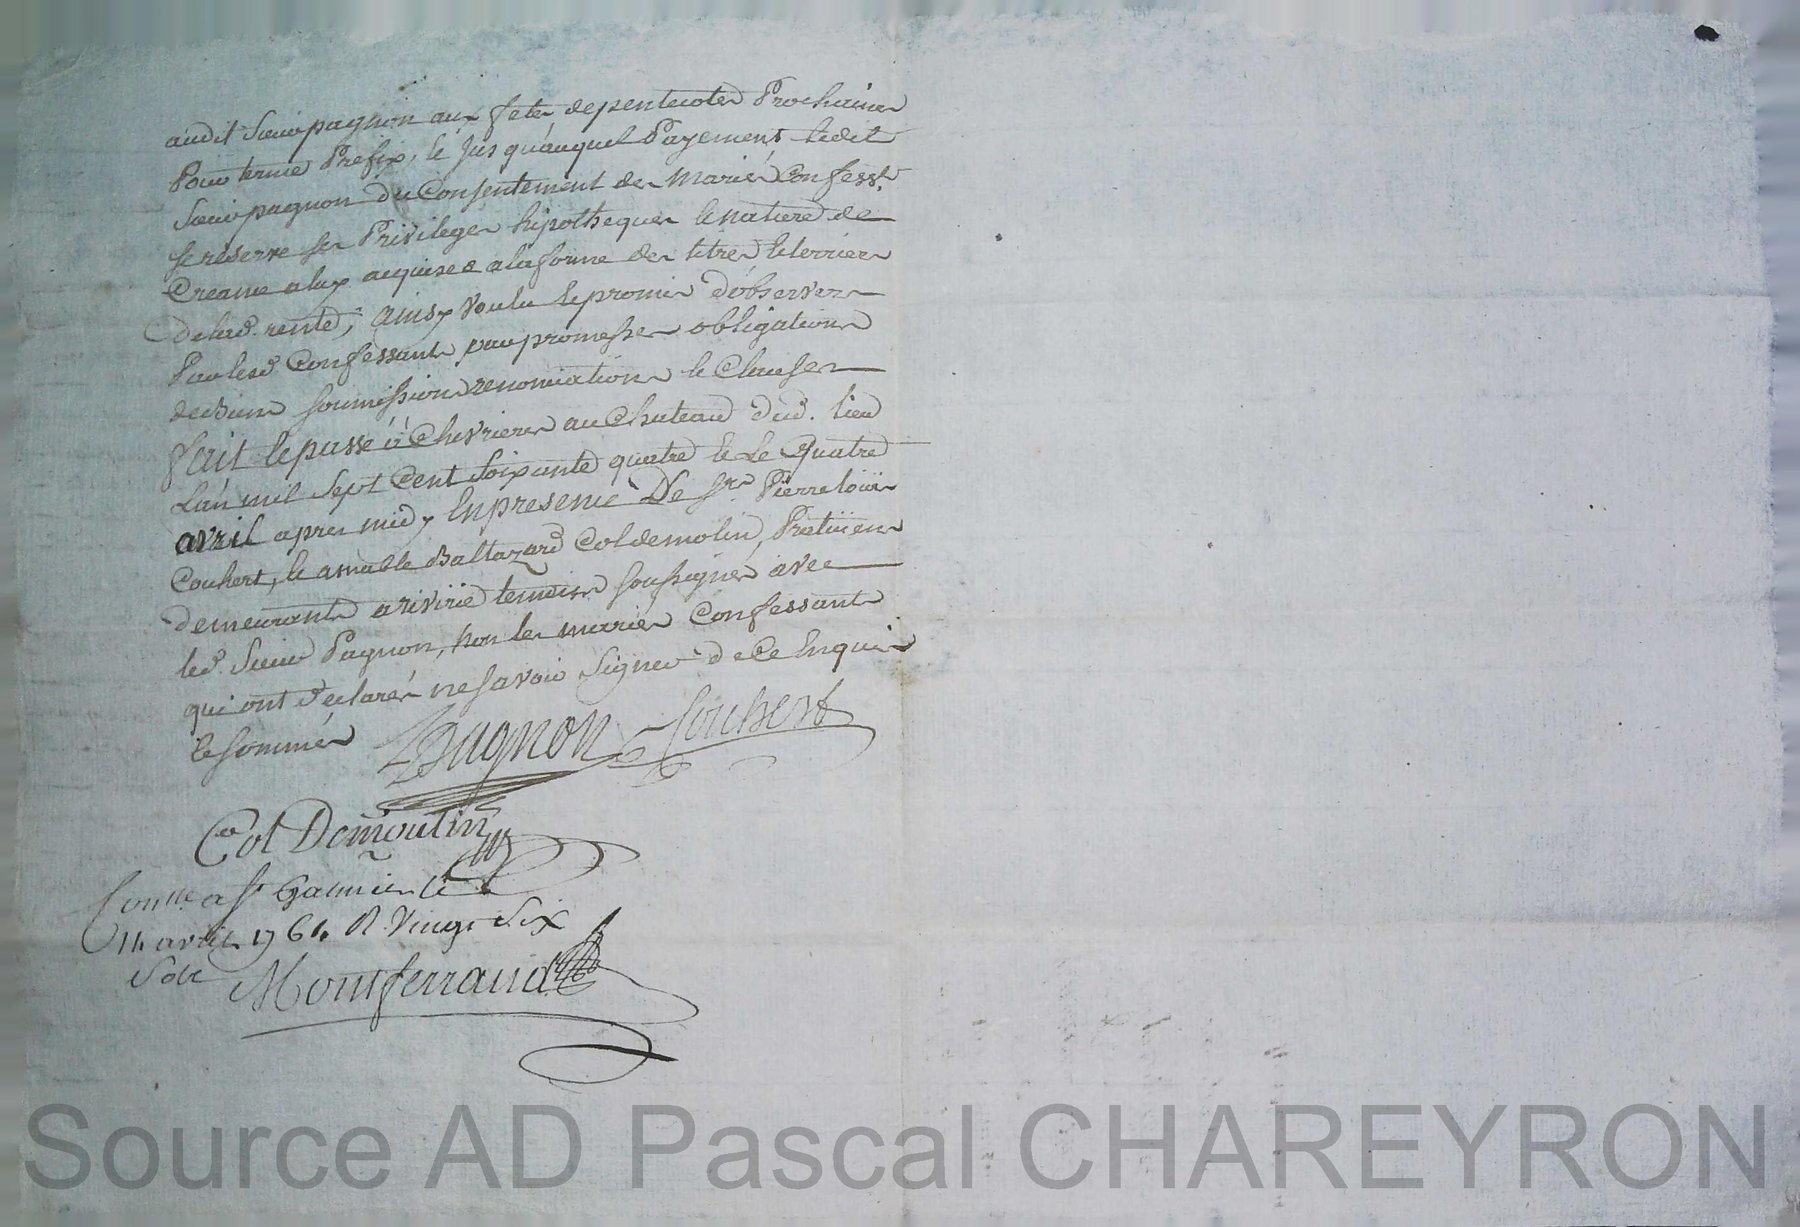 audit Sieur pagnon aux fetes de pentecotes Prochaines
Pour terme Prefix, & jus qu'auquel Payement ledit
Sieur pagnon du Consentement des Mariés Confess.ts
se reserve ses Privileges hipotheques & nature de
Creance a luy acquises a la forme des titres & terriers
de lad. rente, ainsy voulu & promis d'observer
Par lesd Confessants par promesses obligations
de biens soumissions renonciations & Clauses
fait & passé à Chevrieres au Chateau dud. lieu
L'an mil sept Cent Soixante quatre & Le Quatre
avril apres midy En presence De Sr. Pierre loüis
Couhert, & amable Baltazard Coldemolin, Praticiens
demeurants a rivirie temoins soussignés avec
led. Sieur Pagnon, non les mariés Confessants
qui ont declarés ne savoir Signer de Ce Enquis
& sommés Pagnon Couhert
Col Demoulin
Con.lle a St Galmier le
14 avril 1764 R. Vingt Six
Sols Montferrand
Source AD Pascal CHAREYRON